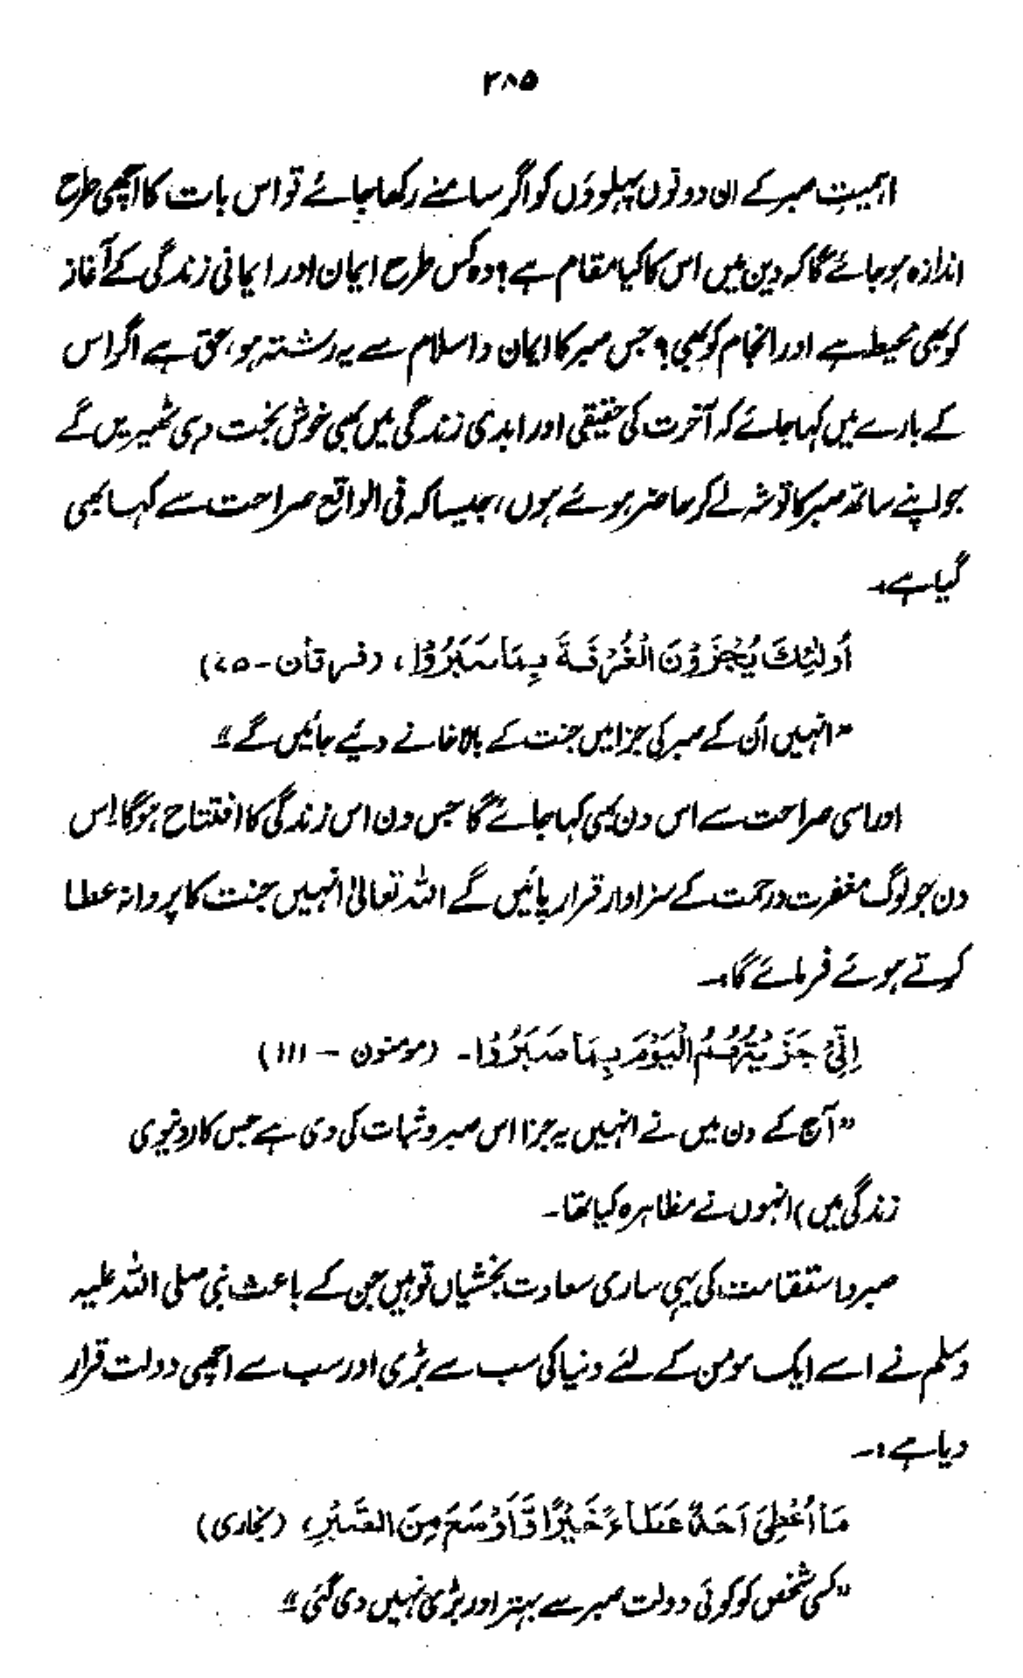 ۲۸۵
اہمیتِ صبر کے ان دونوں پہلوؤں کو اگر سامنے رکھا جائے تو اس بات کا اچھی طرح
اندازہ ہو جائے گا کہ دین میں اس کا کیا مقام ہے؟ وہ کس طرح ایمان اور ایمانی زندگی کے آغاز
کو بھی محیط ہے اور انجام کو بھی؟ جس صبر کا ایمان و اسلام سے یہ رشتہ ہو، حق ہے اگر اس
کے بارے میں کہا جائے کہ آخرت کی حقیقی اور ابدی زندگی میں بھی خوش بخت وہی ٹھیریں گے
جو اپنے ساتھ صبر کا توشہ لے کر حاضر ہوئے ہوں، جیسا کہ فی الواقع صراحت سے کہا بھی
گیا ہے:۔
أُولٰئِكَ يُجْزَوْنَ الْغُرْفَةَ بِمَا صَبَرُوْا، (فرقان - ۷۵)
"انہیں اُن کے صبر کی جزا میں جنت کے بالاخانے دیئے جائیں گے"
اور اسی صراحت سے اس دن بھی کہا جائے گا جس دن اس زندگی کا افتتاح ہوگا۔ اس
دن جو لوگ مغفرت و رحمت کے سزاوار قرار پائیں گے اللہ تعالیٰ انہیں جنت کا پروانہ عطا
کرتے ہوئے فرمائے گا:۔
اِنِّيْ جَزَيْتُهُمُ الْيَوْمَ بِمَا صَبَرُوْا۔ (مومنون - ۱۱۱)
"آج کے دن میں نے انہیں یہ جزا اس صبر و ثبات کی دی ہے جس کا (دنیوی
زندگی میں) انہوں نے مظاہرہ کیا تھا۔
صبر و استقامت کی یہی ساری سعادت بخشیاں تو ہیں جن کے باعث نبی صلی اللہ علیہ
وسلم نے اسے ایک مومن کے لئے دنیا کی سب سے بڑی اور سب سے اچھی دولت قرار
دیا ہے:۔
مَا اُعْطِيَ اَحَدٌ عَطَاءً خَيْرًا وَّاَوْسَعَ مِنَ الصَّبْرِ، (بخاری)
"کسی شخص کو کوئی دولت صبر سے بہتر اور بڑی نہیں دی گئی"